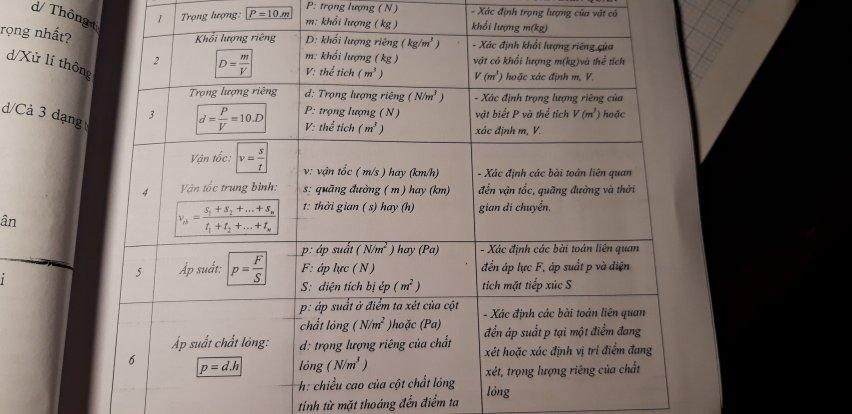 d/ Thông
rọng nhất?
d/Xử lí thông
d/Cả 3 dạng
ân
i
1
Trọng lượng: P = 10.m
P: trọng lượng ( N )
m: khối lượng ( kg )
- Xác định trọng lượng của vật có
khối lượng m(kg)
2
Khối lượng riêng
D = m/V
D: khối lượng riêng ( kg/m³ )
m: khối lượng ( kg )
V: thể tích ( m³ )
- Xác định khối lượng riêng của
vật có khối lượng m(kg)và thể tích
V (m³) hoặc xác định m, V.
3
Trọng lượng riêng
d = P/V = 10.D
d: Trọng lượng riêng ( N/m³ )
P: trọng lượng ( N )
V: thể tích ( m³ )
- Xác định trọng lượng riêng của
vật biết P và thể tích V (m³) hoặc
xác định m, V.
4
Vận tốc: v = s/t
Vận tốc trung bình:
v_tb = (s₁ + s₂ + ... + sₙ)/(t₁ + t₂ + ... + tₙ)
v: vận tốc ( m/s ) hay (km/h)
s: quãng đường ( m ) hay (km)
t: thời gian ( s) hay (h)
- Xác định các bài toán liên quan
đến vận tốc, quãng đường và thời
gian di chuyển.
5
Áp suất: p = F/S
p: áp suất ( N/m² ) hay (Pa)
F: áp lực ( N )
S: diện tích bị ép ( m² )
- Xác định các bài toán liên quan
đến áp lực F, áp suất p và diện
tích mặt tiếp xúc S
6
Áp suất chất lỏng:
p = d.h
p: áp suất ở điểm ta xét của cột
chất lỏng ( N/m² )hoặc (Pa)
d: trọng lượng riêng của chất
lỏng ( N/m³ )
h: chiều cao của cột chất lỏng
tính từ mặt thoáng đến điểm ta
- Xác định các bài toán liên quan
đến áp suất p tại một điểm đang
xét hoặc xác định vị trí điểm đang
xét, trọng lượng riêng của chất
lỏng